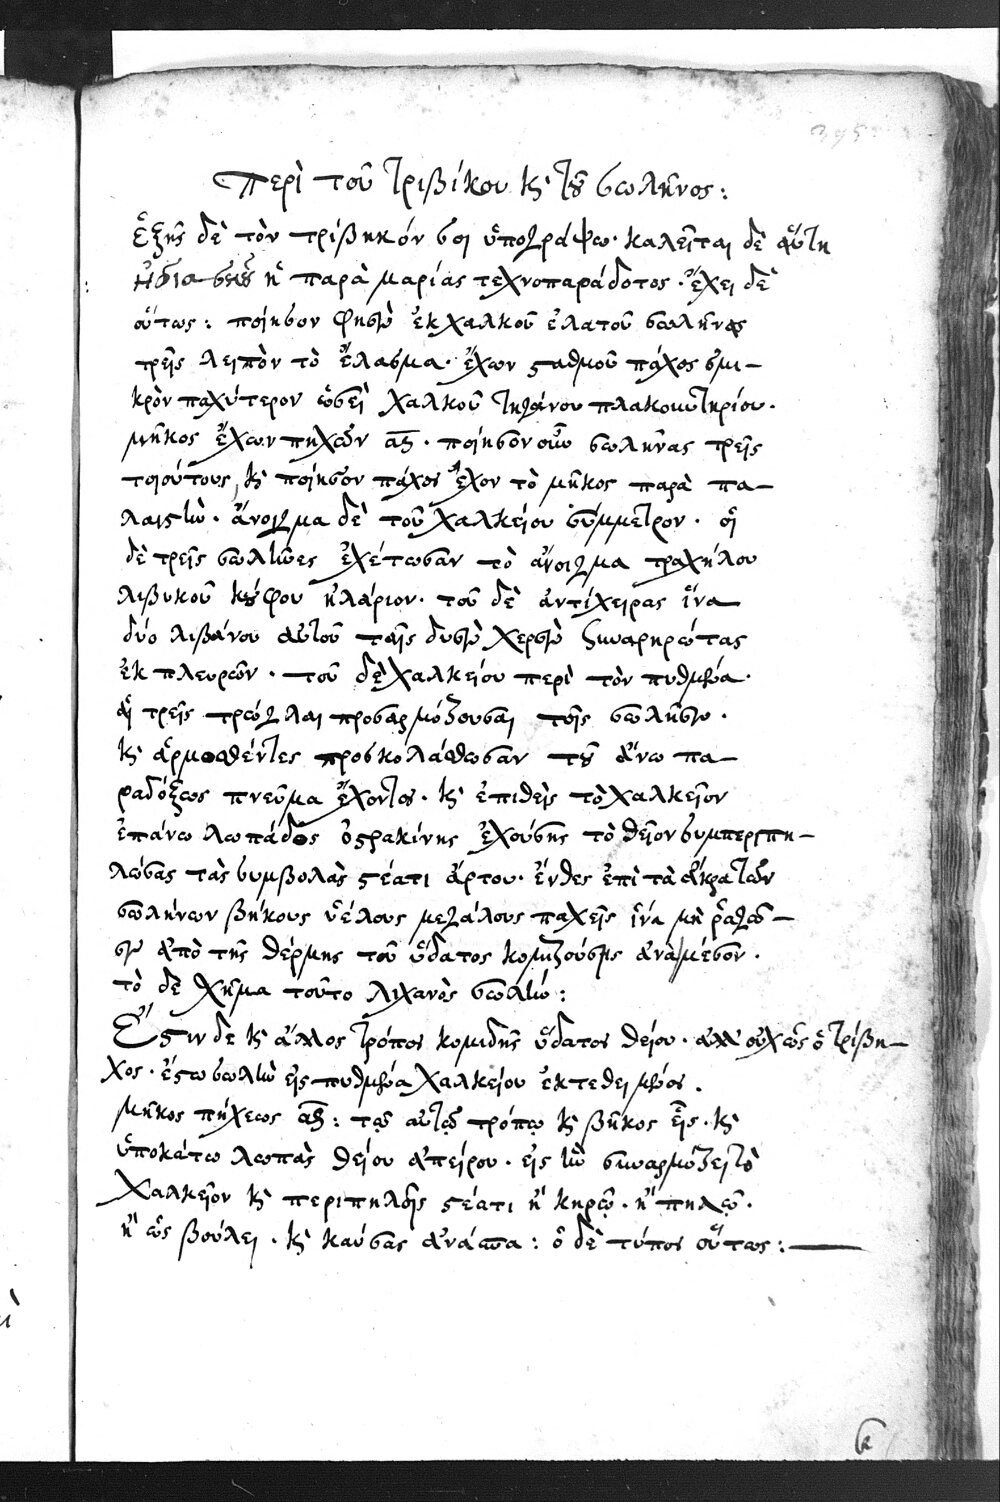 Περὶ τοῦ τριβίκου κ̀ τοῦ σωλῆνος:
ἑξῆς δὲ τὸν τρίβηκόν σοι ὑπογράψω· καλεῖται δὲ αὕτη
ἡ παρὰ μαρίας τεχνοπαράδοτος· ἔχει δὲ
οὕτως: ποίησον φησὶν ἐκ χαλκοῦ ἐλατοῦ σωλῆνας
τρεῖς λειπὸν τὸ ἔλασμα· ἔχων σταθμοῦ πάχος σμι-
κρὸν παχύτερον ὡσεὶ χαλκοῦ τηγάνου πλακουντηρίου·
μῆκος ἔχων πηχῶν · ποίησον οὖν σωλῆνας τρεῖς
τοιούτους, κ̀ ποίησον πάχος ἔχον τὸ μῆκος παρὰ πα-
λαιστὴν· ἄνοιγμα δὲ τοῦ χαλκείου σύμμετρον· οἱ
δὲ τρεῖς σωλῆνες ἐχέτωσαν τὸ ἄνοιγμα τραχήλου
λιβυκοῦ κούφου ἡλάριον· τοῦ δὲ ἀντίχειρας ἵνα
δύο λιβάνου αὐτοῦ ταῖς δυσὶν χερσὶν συναρηρότας
ἐκ πλευρῶν· τοῦ δὲ χαλκείου περὶ τὸν πυθμένα·
αἱ τρεῖς τρώγλαι προσαρμόζουσαι τοῖς σωλῆσιν·
κ̀ ἁρμοσθέντες προσκολάσθωσαν τοῦ ἄνω πα-
ραδόξως πνεῦμα ἔχοντος· κ̀ ἐπιθεὶς τὸ χαλκεῖον
ἐπάνω λωπάδος ὀστρακίνης ἐχούσης τὸ θεῖον συμπεριπη-
λώσας τὰς συμβολὰς στέατι ἄρτου· ἔνθες ἐπὶ τὰ ἄκρα τῶν
σωλήνων βήκους ὑέλους μεγάλους παχεῖς ἵνα μὴ ῥαγῶ-
σιν ἀπὸ τῆς θέρμης τοῦ ὕδατος κομιζούσης ἀνὰ μέσον·
τὸ δὲ χῆμα τοῦτο λιχανὸς σωλήν:
Ἔστιν δε κ̀ ἄλλος τρόπος κομιδῆς ὕδατος θείου· ἀλλ οὐχ ὡς ὁ τρίβη-
χος· ἔστω σωλὴν εἰς πυθμένα χαλκείου ἐκτεθειμένος·
μῆκος πήχεως : τῷ αὐτῷ τρόπῳ κ̀ βῆκος εἷς· κ̀
ὑποκάτω λωπὰς θείου ἀπείρου· εἰς ἣν συναρμόζει τὸ
χαλκεῖον κ̀ περιπηλοῖς στέατι ἢ κηρῷ· ἢ πηλῷ·
ἢ ὡς βούλει· κ̀ καύσας ἀνάσπα: ὁ δὲ τύπος οὕτως: